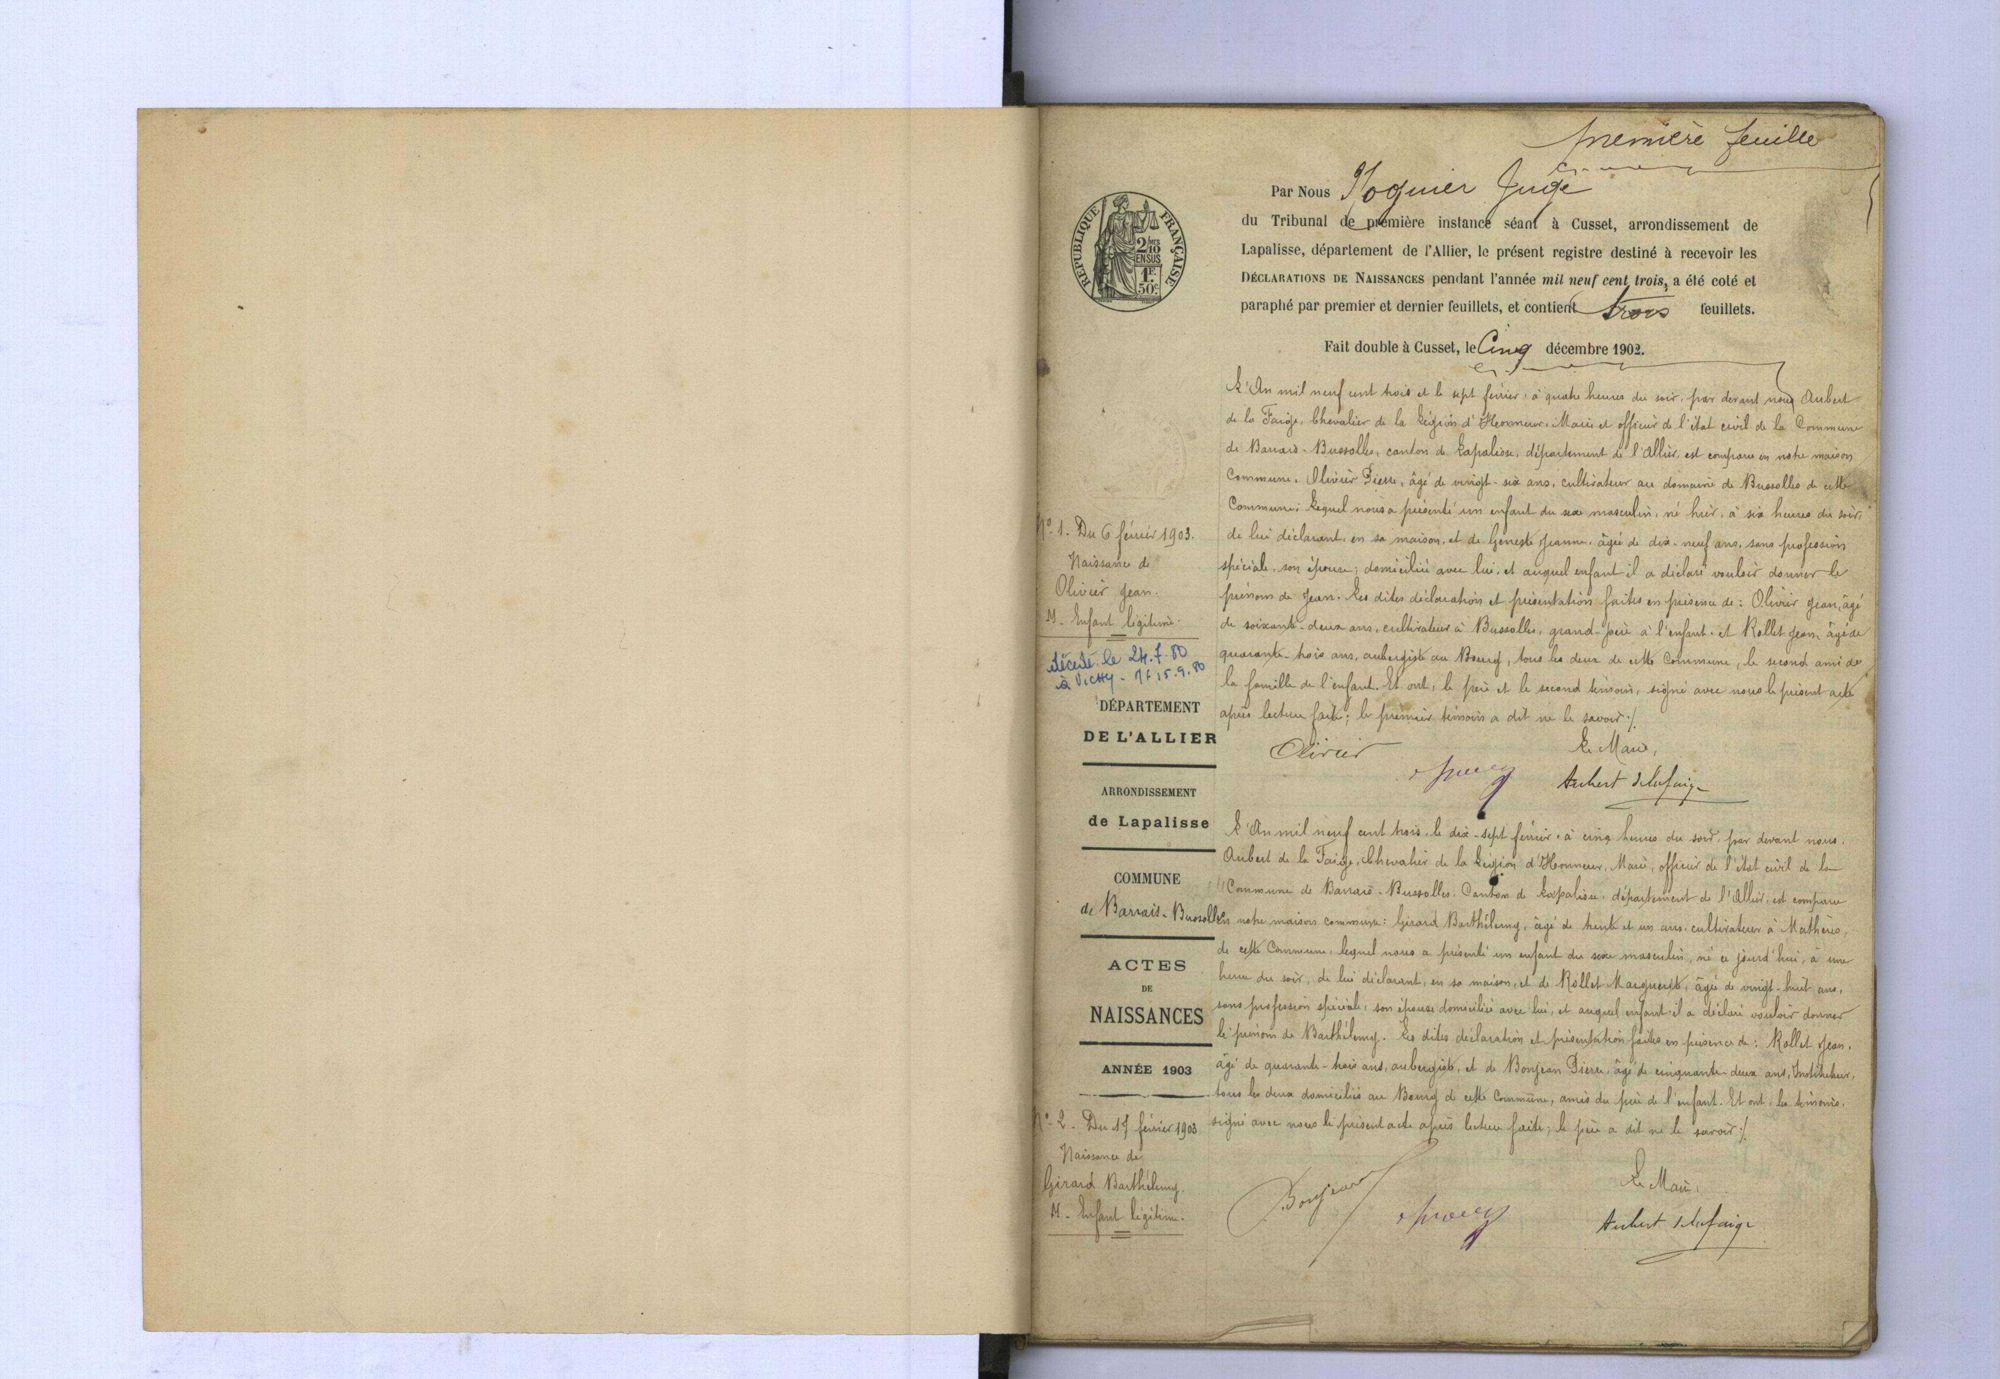 première feuille
Par Nous Noguier Juge
du Tribunal de première instance séant à Cusset, arrondissement de
Lapalisse, département de l'Allier, le présent registre destiné à recevoir les
DÉCLARATIONS DE NAISSANCES pendant l'année mil neuf cent trois, a été coté et
paraphé par premier et dernier feuillets, et contient trois feuillets.
Fait double à Cusset, le Cinq décembre 1902.
RÉPUBLIQUE FRANÇAISE
2/10
EN SUS
1F.
50c
L'An mil neuf cent trois et le sept février à quatre heures du soir, par devant nous Aubert
de la Faige, Chevalier de la Légion d'Honneur, Maire et officier de l'état civil de la Commune
de Barrais-Bussolles, canton de Lapalisse, département de l'Allier, est comparu en notre maison
Commune, Olivier Pierre, âgé de vingt-six ans, cultivateur au domaine de Bussolles de cette
Commune; Lequel nous a présenté un enfant du sexe masculin, né hier, à six heures du soir,
de lui déclarant, en sa maison, et de Geneste Jeanne, âgée de dix-neuf ans, sans profession
spéciale, son épouse; domiciliée avec lui, et auquel enfant il a déclaré vouloir donner le
prénom de Jean. Les dites déclaration et présentation faites en présence de: Olivier Jean, âgé
de soixante-deux ans, cultivateur à Bussolles, grand-père à l'enfant et Rollet Jean, âgé de
quarante-trois ans, aubergiste au Bourg, tous les deux de cette Commune, le second ami de
la famille de l'enfant. Et ont, le père et le second témoin, signé avec nous le présent acte
après lecture faite; le premier témoin a dit ne le savoir./.
Olivier
Le Maire,
Aubert delafaige
N° 1. Du 6 février 1903.
Naissance de
Olivier Jean.
M - Enfant légitime.
décédé le 24.7.80
à Vichy - 15.9.80
DÉPARTEMENT
DE L'ALLIER
ARRONDISSEMENT
de Lapalisse
COMMUNE
de Barrais-Bussolles
ACTES
DE
NAISSANCES
ANNÉE 1903
L'An mil neuf cent trois, le dix-sept février, à cinq heures du soir, par devant nous,
Aubert de la Faige, Chevalier de la Légion d'Honneur, Maire, officier de l'état civil de la
Commune de Barrais-Bussolles, Canton de Lapalisse, département de l'Allier, est comparu
en notre maison commune: Girard Barthélemy, âgé de trente et un ans, cultivateur à
de cette Commune, lequel nous a présenté un enfant du sexe masculin, né ce jourd'hui, à une
heure du soir, de lui déclarant, en sa maison, et de Rollet Marguerite, âgée de vingt-huit ans,
sans profession spéciale, son épouse domiciliée avec lui, et auquel enfant il a déclaré vouloir donner
le prénom de Barthélemy. Les dites déclaration et présentation faites en présence de: Rollet Jean,
âgé de quarante-trois ans, aubergiste, et de Bonjean Pierre, âgé de cinquante-deux ans, Instituteur,
tous les deux domiciliés au Bourg de cette Commune, amis du père de l'enfant. Et ont, les témoins,
signé avec nous le présent acte après lecture faite; le père a dit ne le savoir./.
N° 2. Du 17 février 1903
Naissance de
Girard Barthélemy.
M - Enfant légitime.
Bonjean
Le Maire,
Aubert delafaige